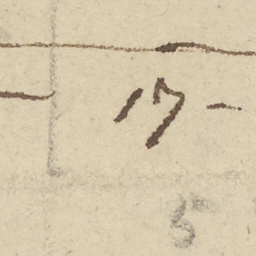 17-
5